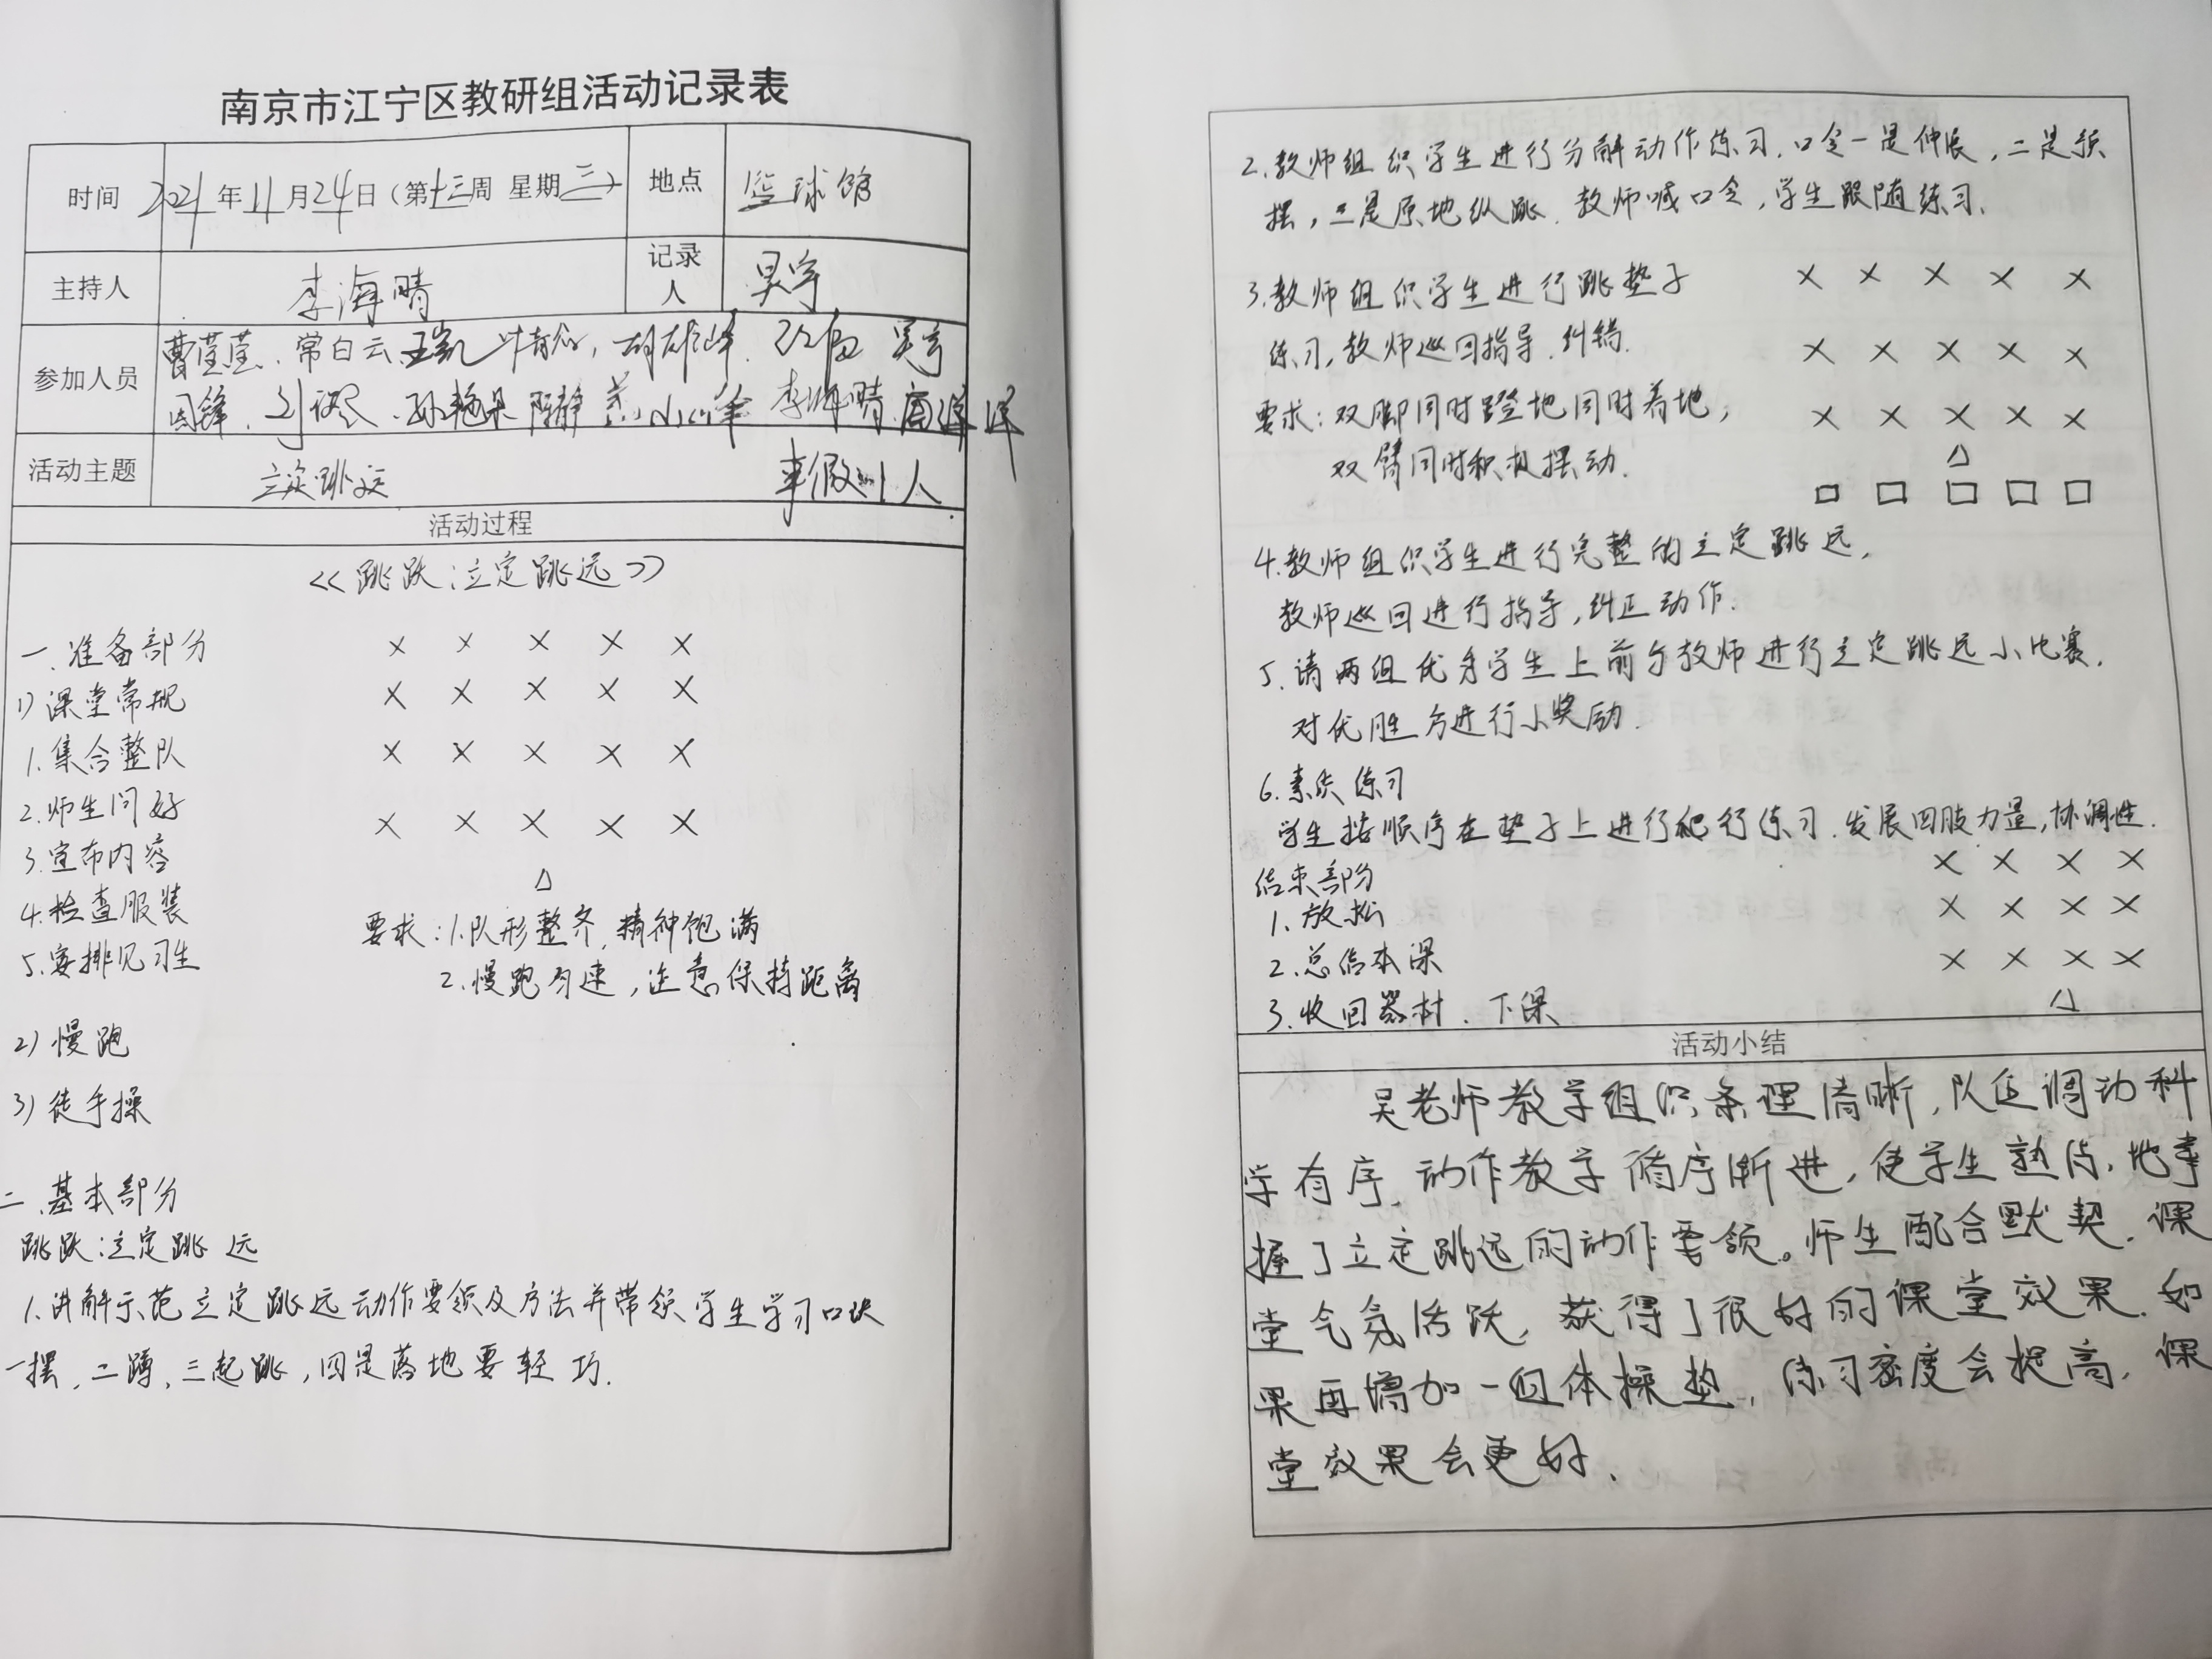 南京市江宁区教研组活动记录表
时间 2021年11月24日（第十三周 星期三） 地点 篮球馆
主持人 李海晴 记录人 吴宇
参加人员 曹莹莹、常白云、王凯 胡雄峰、吴宇
李海晴
活动主题 立定跳远 事假 1人
活动过程
《跳跃：立定跳远》
一、准备部分 × × × × ×
1）课堂常规 × × × × ×
1.集合整队 × × × × ×
2.师生问好 × × × × ×
3.宣布内容
△
4.检查服装 要求：1.队形整齐，精神饱满
5.安排见习生 2.慢跑匀速，注意保持距离
2）慢跑
3）徒手操
二、基本部分
跳跃：立定跳远
1.讲解示范立定跳远动作要领及方法并带领学生学习口诀
一摆，二蹲，三起跳，四是落地要轻巧．
2.教师组织学生进行分解动作练习．口令一是伸展，二是预
摆，三是原地纵跳．教师喊口令，学生跟随练习．
3.教师组织学生进行跳垫子 × × × × ×
练习，教师巡回指导．纠错． × × × × ×
要求：双脚同时蹬地同时着地； × × × × ×
双臂同时积极摆动． △
□ □ □ □ □
4.教师组织学生进行完整的立定跳远，
教师巡回进行指导，纠正动作．
5.请两组优秀学生上前与教师进行立定跳远小比赛．
对优胜方进行小奖励．
6.素质练习
学生按顺序在垫子上进行爬行练习．发展四肢力量，协调性．
结束部分 × × × ×
1、放松 × × × ×
2.总结本课 × × × ×
3.收回器材．下课 △
活动小结
吴老师教学组织条理清晰，队伍调动科
学有序，动作教学循序渐进，使学生熟练地掌
握了立定跳远的动作要领。师生配合默契．课
堂气氛活跃，获得了很好的课堂效果．如
果再增加一组体操垫，练习密度会提高，课
堂效果会更好．